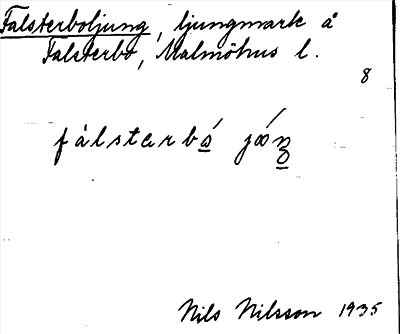 Falsterboljung, ljungmark å
Falsterbo, Malmöhus l.
8
fàlstarbó̱ jóŋ̱
Nils Nilsson 1935